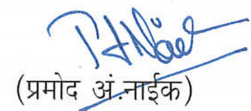 (प्रमोद अं.नाईक)